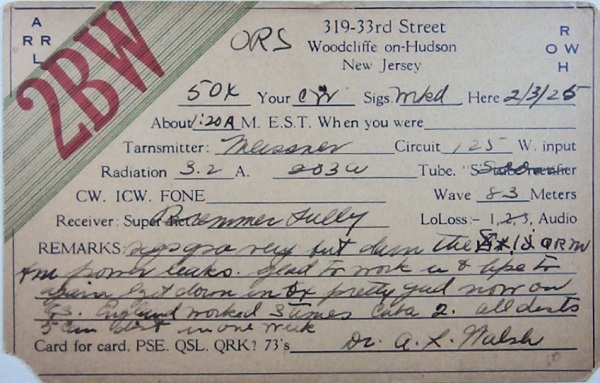 A R R L
2BW
ORS
319-33rd Street
Woodcliffe on-Hudson
New Jersey
R O W H
5OX Your CW Sigs. Mkd Here 2/3/25
About 1:20 A M. E.S.T. When you were
Tarnsmitter: Meissner Circuit 125 W. input
Radiation 3.2 A. 203a Tube. "S
CW. ICW. FONE Wave 83 Meters
Receiver: Super Grammer Tully LoLoss:- 1, 2, 3, Audio
REMARKS: very but the QRM
power leaks. Glad to work u & hpe to
again. Get down in DX pretty gud now on
England worked 3 times Cuba 2. all dists
5 in one week
Card for card. PSE. QSL. QRK? 73's Dr. A. L. Walsh